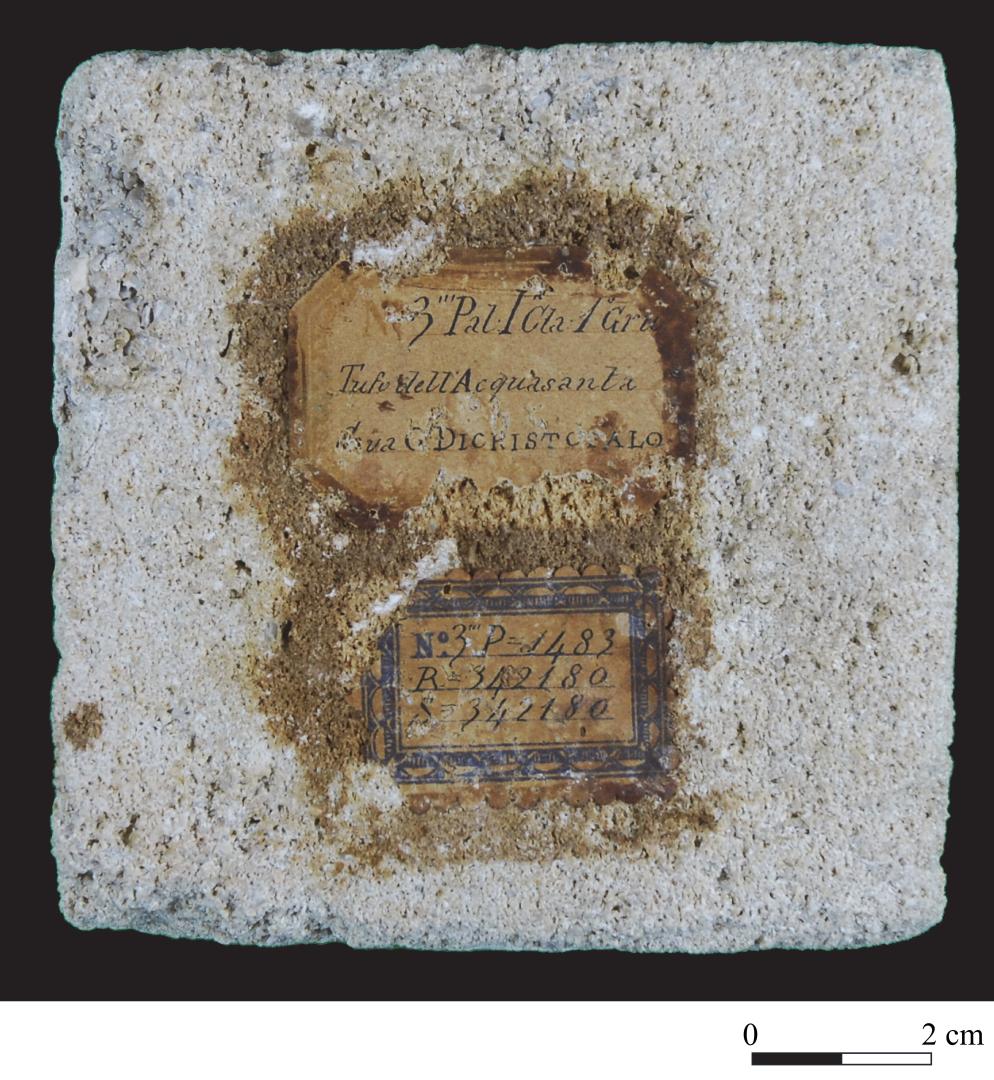 3''' Pal. Iª Cla. 1ª Gru
Tufo dell'Acquasanta
C. DICRISTOFALO
Nº. 3''' P=1483
R=342180
S=342180
0 2 cm